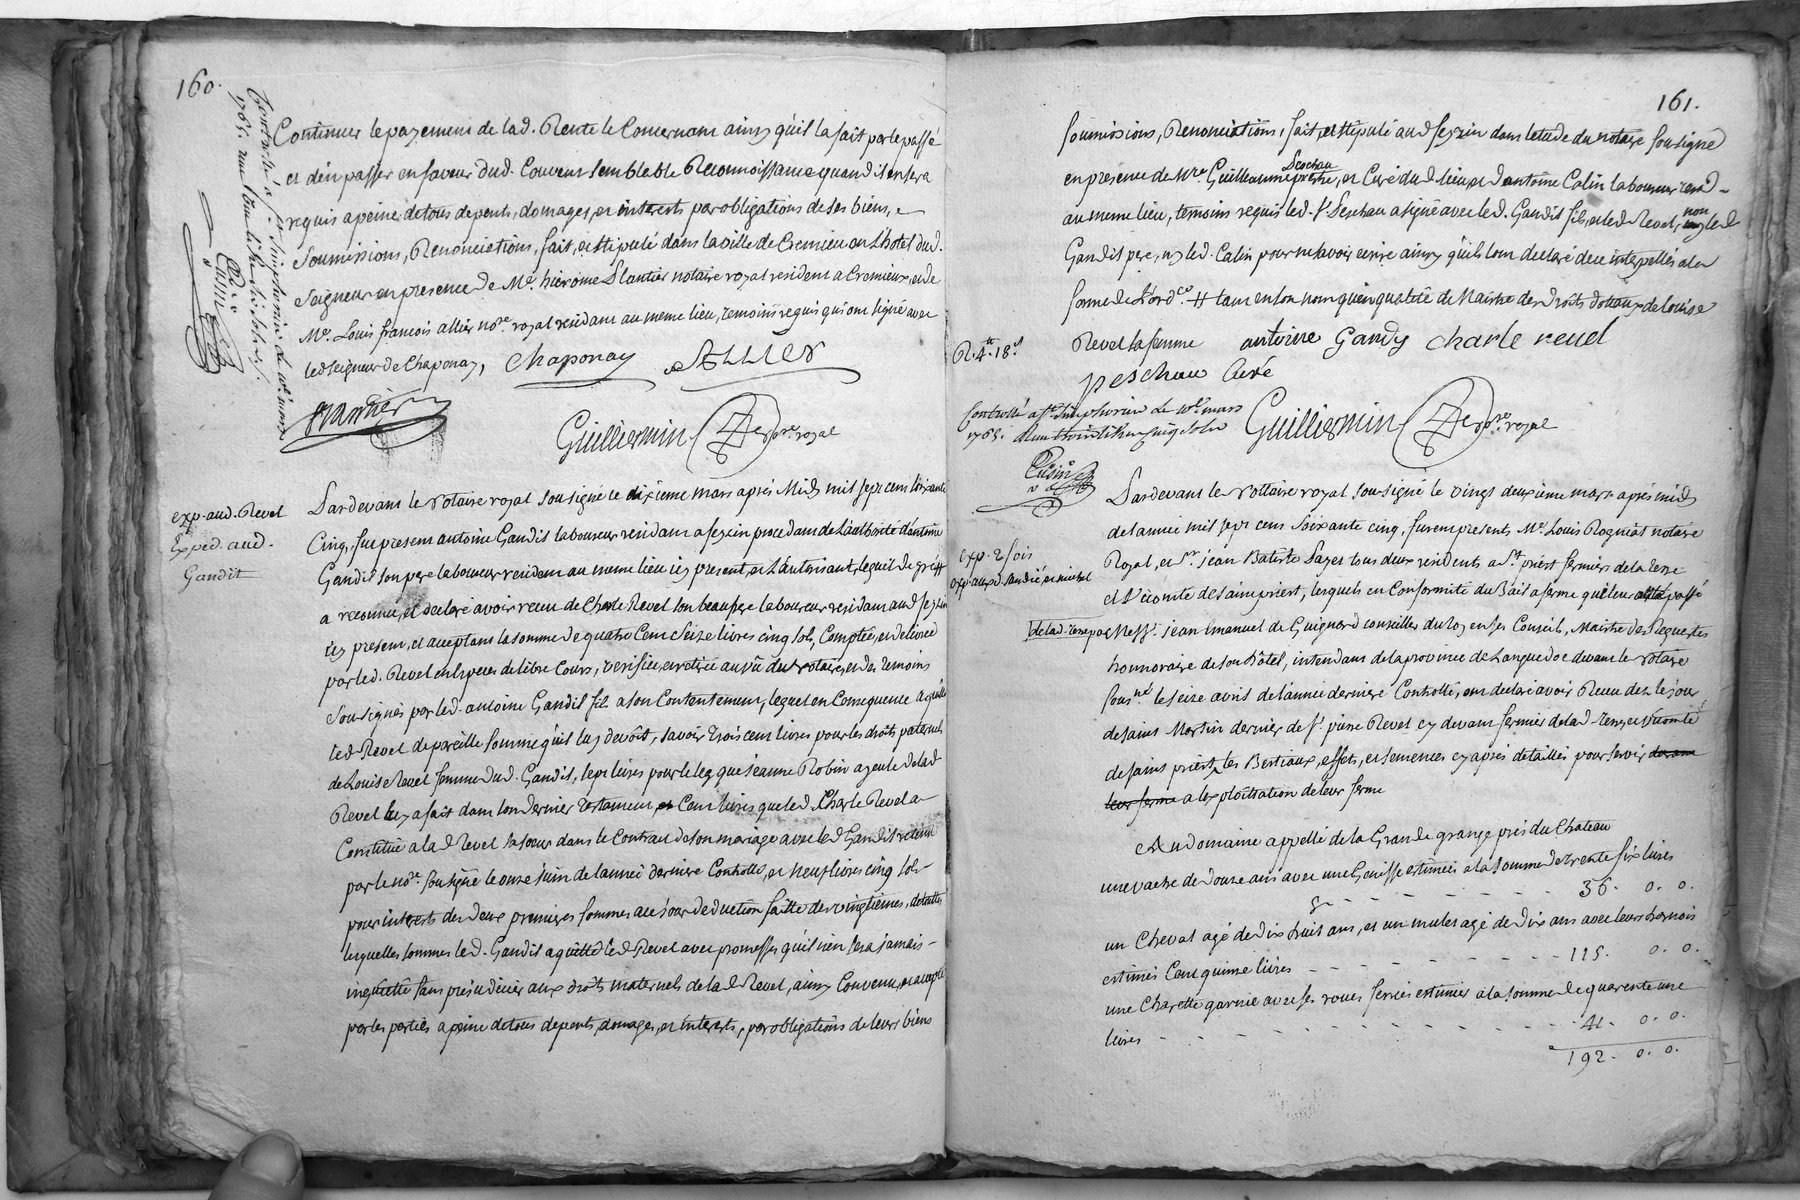 160.
Continuer le payement de lad. Rente le Concernant ainsy qu'il la fait par le passé
et d'en passer en faveur dud. Couvent semblable Reconnoissance quand il en sera
requis a peine de tous depents, domages, et interests par obligations de ses biens,
Soumissions, Renonciations, fait, et stipulé dans la ville de Cremieu en L'hotel dud.
Seigneur en presence de Me. hierome Plantier notaire royal resident a Cremieux, et de
Me. Louis francois allier nore. royal residant au meme lieu, temoins requis qui ont signé avec
led seigneur de Chaponay,
Chaponay
ALLIER
Plantier
Guilliermin nore. royal
Controllé a st. simphorien le
1765.
Cusin
exp. aud. Revel
Exped. aud.
Gandit
Pardevant le Notaire royal Sousigné ce dixieme mars aprés Midy mil sept cens soixante
Cinq, fut present antoine Gandit laboureur residant a feyzin procedant de L'authorité d'antoine
Gandit son pere laboureur resident au meme lieu icy present, et L'autorisant, lequel de gré #
a reconnu, et declaré avoir receu de Charle Revel son beaufrere laboureur residant aud feyzin
icy present, et aceptant la somme de quatre Cent Seize livres cinq sols, Comptée, et delivrée
par led. Revel en Especes de libre Cours, verifiée, et retirée au vû du Notaire, et des temoins
Sousignés par led. antoine Gandit fils a son Contentement, lequel en Consequence aquitte
led Revel de pareille somme qu'il luy devoit, savoir trois cent livres pour les droits paternels
de Louise Revel femme dud. Gandit, sept livres pour le leg que Jeanne Robin ayeule de lad
Revel luy a fait dans son dernier testament, et Cent livres que led. Charle Revel a
Constitué a lad Revel sa soeur dans le Contrat de son mariage avec led Gandit retenu
par le nore. sousigné le onze juin de l'année derniere Controllé, et neuf livres cinq sols
pour interests des deux premieres sommes a ce jour deduction faitte des vingtiemes, de toutes
lesquelles sommes led. Gandit aquitte led Revel avec promesse qu'il n'en sera jamais
inquietté sans prejudicier aux droits maternels de lad Revel, ainsy Convenu, et accepté
par les parties a peine de tous depents, domages, et interests, par obligations de leurs biens
161.
soumissions, Renonciations, fait, et stipulé aud feyzin dans letude du notaire sousigné
en presence de mre. Guilleaume Peschau pretre, et Curé dud lieu, et d'antoine Calin laboureur resid
au meme lieu, temoins requis led. sr. Peschau a signé avec led. Gandit fils, et led Revel, non led
Gandit pere, ny led. Calin pour ne savoir ecrire ainsy qu'ils l'ont declaré de ce interpellés a la
forme de L'ordce. # tant en son nom qu'en qualité de Maistre des droits dotaux de louise
Revel sa femme
antoine Gandy Charle revel
peschau Curé
R. 4tt. 18s
Controllé a st. simphorien le mars
1765.
Cusin
Guilliermin nore. royal
exp. 2 fois
Pardevant le Nottaire royal Sousigné le vingt deuxieme mars aprés midy
de lannée mil sept cens soixante cinq, furent presents Me. Louis Rogniat notaire
Royal, et sr. jean Batiste Payet tous deux residents a St. priest fermiers de la terre
et Vicomté de saint priest, lesquels en Conformité du Bail a ferme qui leur a été passé
de lad. terre par Messr. jean Emanuel de Guignard conseiller du roy en ses Conseils, Maistre des Requestes
honnoraire de son hôtel, intendant de la province de Languedoc devant le Notaire
sousné. le seize avril de l'année derniere Controllé, ont declaré avoir Receu dez le jour
de saint Martin dernier de sr. pierre Revel cy devant fermier de lad. terre, et Vicomté
de saint priest, les Bestiaux, effets, et semences cy aprés detaillés pour servir
a lexploittation de leur ferme
Au domaine appellé de la Grande grange prés du Chateau
une vache de douze ans avec une Genisse estimées a la somme de trente six livres
cy - - - - - - - 36. 0. 0.
un Cheval agé de dix huit ans, et un mulet agé de dix ans avec leurs harnois
estimés Cent quinze livres - - - - - - - 115. 0. 0.
une Charette garnie avec ses roues ferrées estimées a la somme de quarente une
livres - - - - - - - 41. 0. 0.
192. 0. 0.